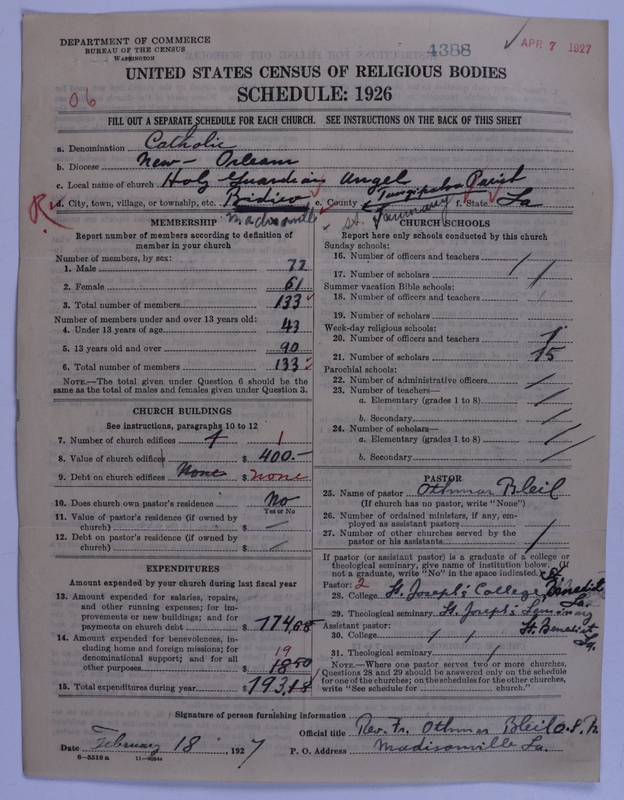 DEPARTMENT OF COMMERCE
BUREAU OF THE CENSUS
WASHINGTON
4388
APR 7 1927
06
UNITED STATES CENSUS OF RELIGIOUS BODIES
SCHEDULE: 1926
FILL OUT A SEPARATE SCHEDULE FOR EACH CHURCH. SEE INSTRUCTIONS ON THE BACK OF THIS SHEET
a. Denomination Catholic
b. Diocese New-Orleans
c. Local name of church Holy Guardian Angel
d. City, town, village, or township, etc. Bidico e. County Tangipahoa Parish f. State La
Madisonville St. Tammany
MEMBERSHIP
Report number of members according to definition of
member in your church
Number of members, by sex:
1. Male 72
2. Female 61
3. Total number of members 133
Number of members under and over 13 years old:
4. Under 13 years of age 43
5. 13 years old and over 90
6. Total number of members 133
NOTE.—The total given under Question 6 should be the
same as the total of males and females given under Question 3.
CHURCH BUILDINGS
See instructions, paragraphs 10 to 12
7. Number of church edifices 1
8. Value of church edifices $ 400.-
9. Debt on church edifices None $ none
10. Does church own pastor's residence? No
Yes or No
11. Value of pastor's residence (if owned by
church) $ —
12. Debt on pastor's residence (if owned by
church) $ —
EXPENDITURES
Amount expended by your church during last fiscal year
13. Amount expended for salaries, repairs,
and other running expenses; for im-
provements or new buildings; and for
payments on church debt $ 174,68
14. Amount expended for benevolences, in-
cluding home and foreign missions; for
denominational support; and for all
other purposes 18.50
19
15. Total expenditures during year $ 193,18
CHURCH SCHOOLS
Report here only schools conducted by this church
Sunday schools:
16. Number of officers and teachers /
17. Number of scholars /
Summer vacation Bible schools:
18. Number of officers and teachers /
19. Number of scholars
Week-day religious schools:
20. Number of officers and teachers 1
21. Number of scholars 15
Parochial schools:
22. Number of administrative officers /
23. Number of teachers—
a. Elementary (grades 1 to 8) /
b. Secondary /
24. Number of scholars—
a. Elementary (grades 1 to 8) /
b. Secondary /
PASTOR
25. Name of pastor Othmar Bleil
(If church has no pastor, write "None")
26. Number of ordained ministers, if any, em-
ployed as assistant pastors /
27. Number of other churches served by the
pastor or his assistants /
If pastor (or assistant pastor) is a graduate of a college or
theological seminary, give name of institution below. (If
not a graduate, write "No" in the space indicated.)
Pastor: 2
28. College St. Joseph's College, St. Benedict La.
29. Theological seminary St. Joseph's Seminary
Assistant pastor: St. Benedict La.
30. College / /
31. Theological seminary /
NOTE.—Where one pastor serves two or more churches,
Questions 28 and 29 should be answered only on the schedule
for one of the churches; on the schedules for the other churches,
write "See schedule for church."
Signature of person furnishing information
Official title Rev. Fr. Othmar Bleil
Date February 18, 1927 P. O. Address Madisonville La.
8-5518a